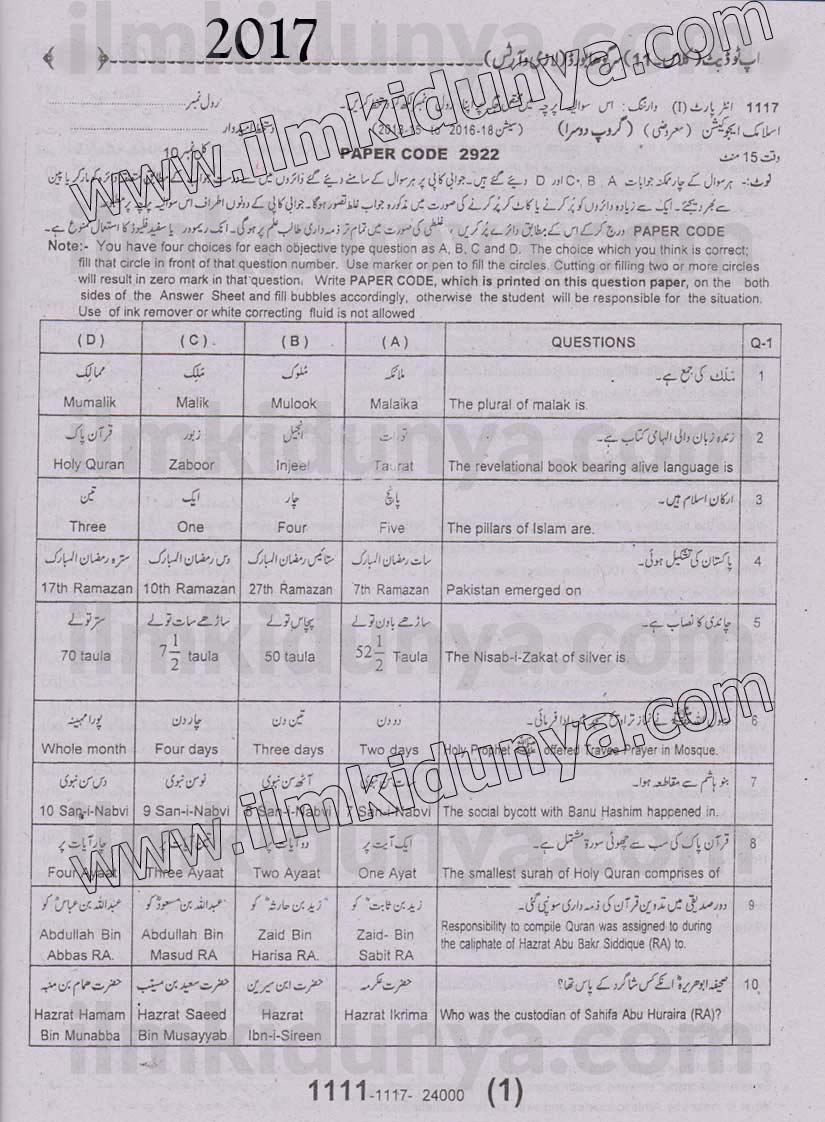 2017
اپ ٹو ڈیٹ
1117 انٹر پارٹ (I) وارننگ: اس سوالیہ پرچہ
رول نمبر
اسلامک ایجوکیشن (معروضی) (گروپ دوسرا) (سیشن 18-2016
وقت 15 منٹ PAPER CODE 2922 کل نمبر 10
نوٹ:- ہر سوال کے چار ممکنہ جوابات A، B، C اور D دیئے گئے ہیں۔ جوابی کاپی پر ہر سوال کے سامنے دیئے گئے دائروں میں سے
سے بھر دیجئے۔ ایک سے زیادہ دائروں کو پُر کرنے یا کاٹ کر پُر کرنے کی صورت میں مذکورہ جواب غلط تصور ہوگا۔ جوابی کاپی کے دونوں اطراف اس سوالیہ پرچہ پر
PAPER CODE درج کر کے اس کے مطابق دائرے پُر کریں، غلطی کی صورت میں تمام تر ذمہ داری طالب علم پر ہوگی۔ انک ریموور یا سفید فلیوڈ کا استعمال ممنوع ہے۔
Note:- You have four choices for each objective type question as A, B, C and D. The choice which you think is correct;
fill that circle in front of that question number. Use marker or pen to fill the circles. Cutting or filling two or more circles
will result in zero mark in that question. Write PAPER CODE, which is printed on this question paper, on the both
sides of the Answer Sheet and fill bubbles accordingly, otherwise the student will be responsible for the situation.
Use of ink remover or white correcting fluid is not allowed
(D) (C) (B) (A) QUESTIONS Q-1
ممالک مَلِک مُلوک ملائکہ مَلَک کی جمع ہے۔ 1
Mumalik Malik Mulook Malaika The plural of malak is.
قرآن پاک زبور انجیل تورات زندہ زبان والی الہامی کتاب ہے۔ 2
Holy Quran Zaboor Injeel Taurat The revelational book bearing alive language is
تین ایک چار پانچ ارکان اسلام ہیں۔ 3
Three One Four Five The pillars of Islam are.
سترہ رمضان المبارک دس رمضان المبارک ستائیس رمضان المبارک سات رمضان المبارک پاکستان کی تشکیل ہوئی۔ 4
17th Ramazan 10th Ramazan 27th Ramazan 7th Ramazan Pakistan emerged on
ستر تولے ساڑھے سات تولے پچاس تولے ساڑھے باون تولے چاندی کا نصاب ہے۔ 5
70 taula 7 1/2 taula 50 taula 52 1/2 Taula The Nisab-i-Zakat of silver is
پورا مہینہ چار دن تین دن دو دن رسول اللہ ﷺ نے نماز تراویح مسجد میں ادا فرمائی۔ 6
Whole month Four days Three days Two days Holy Prophet ﷺ offered Travee Prayer in Mosque.
دس سن نبوی نو سن نبوی آٹھ سن نبوی سات سن نبوی بنو ہاشم سے مقاطعہ ہوا۔ 7
10 San-i-Nabvi 9 San-i-Nabvi 8 San-i-Nabvi 7 San-i-Nabvi The social bycott with Banu Hashim happened in.
چار آیات پر تین آیات پر دو آیات پر ایک آیت پر قرآن پاک کی سب سے چھوٹی سورۃ مشتمل ہے۔ 8
Four Ayaat Three Ayaat Two Ayaat One Ayat The smallest surah of Holy Quran comprises of
عبداللہ بن عباسؓ کو عبداللہ بن مسعودؓ کو زید بن حارثہؓ کو زید بن ثابتؓ کو دور صدیقی میں تدوین قرآن کی ذمہ داری سونپی گئی۔ 9
Abdullah Bin Abdullah Bin Zaid Bin Zaid- Bin Responsibility to compile Quran was assigned to during
Abbas RA. Masud RA Harisa RA. Sabit RA the caliphate of Hazrat Abu Bakr Siddique (RA) to.
حضرت ھمام بن منبہ حضرت سعید بن مسیب حضرت ابن سیرین حضرت عکرمہ صحیفہ ابو ھریرہؓ انکے کس شاگرد کے پاس تھا؟ 10
Hazrat Hamam Hazrat Saeed Hazrat Hazrat Ikrima Who was the custodian of Sahifa Abu Huraira (RA)?
Bin Munabba Bin Musayyab Ibn-i-Sireen
1111-1117- 24000 (1)
www.ilmkidunya.com
www.ilmkidunya.com
ilmkidunya.com
ilmkidunya.com
ilmkidunya.com
ilmkidunya.com
ilmkidunya.com